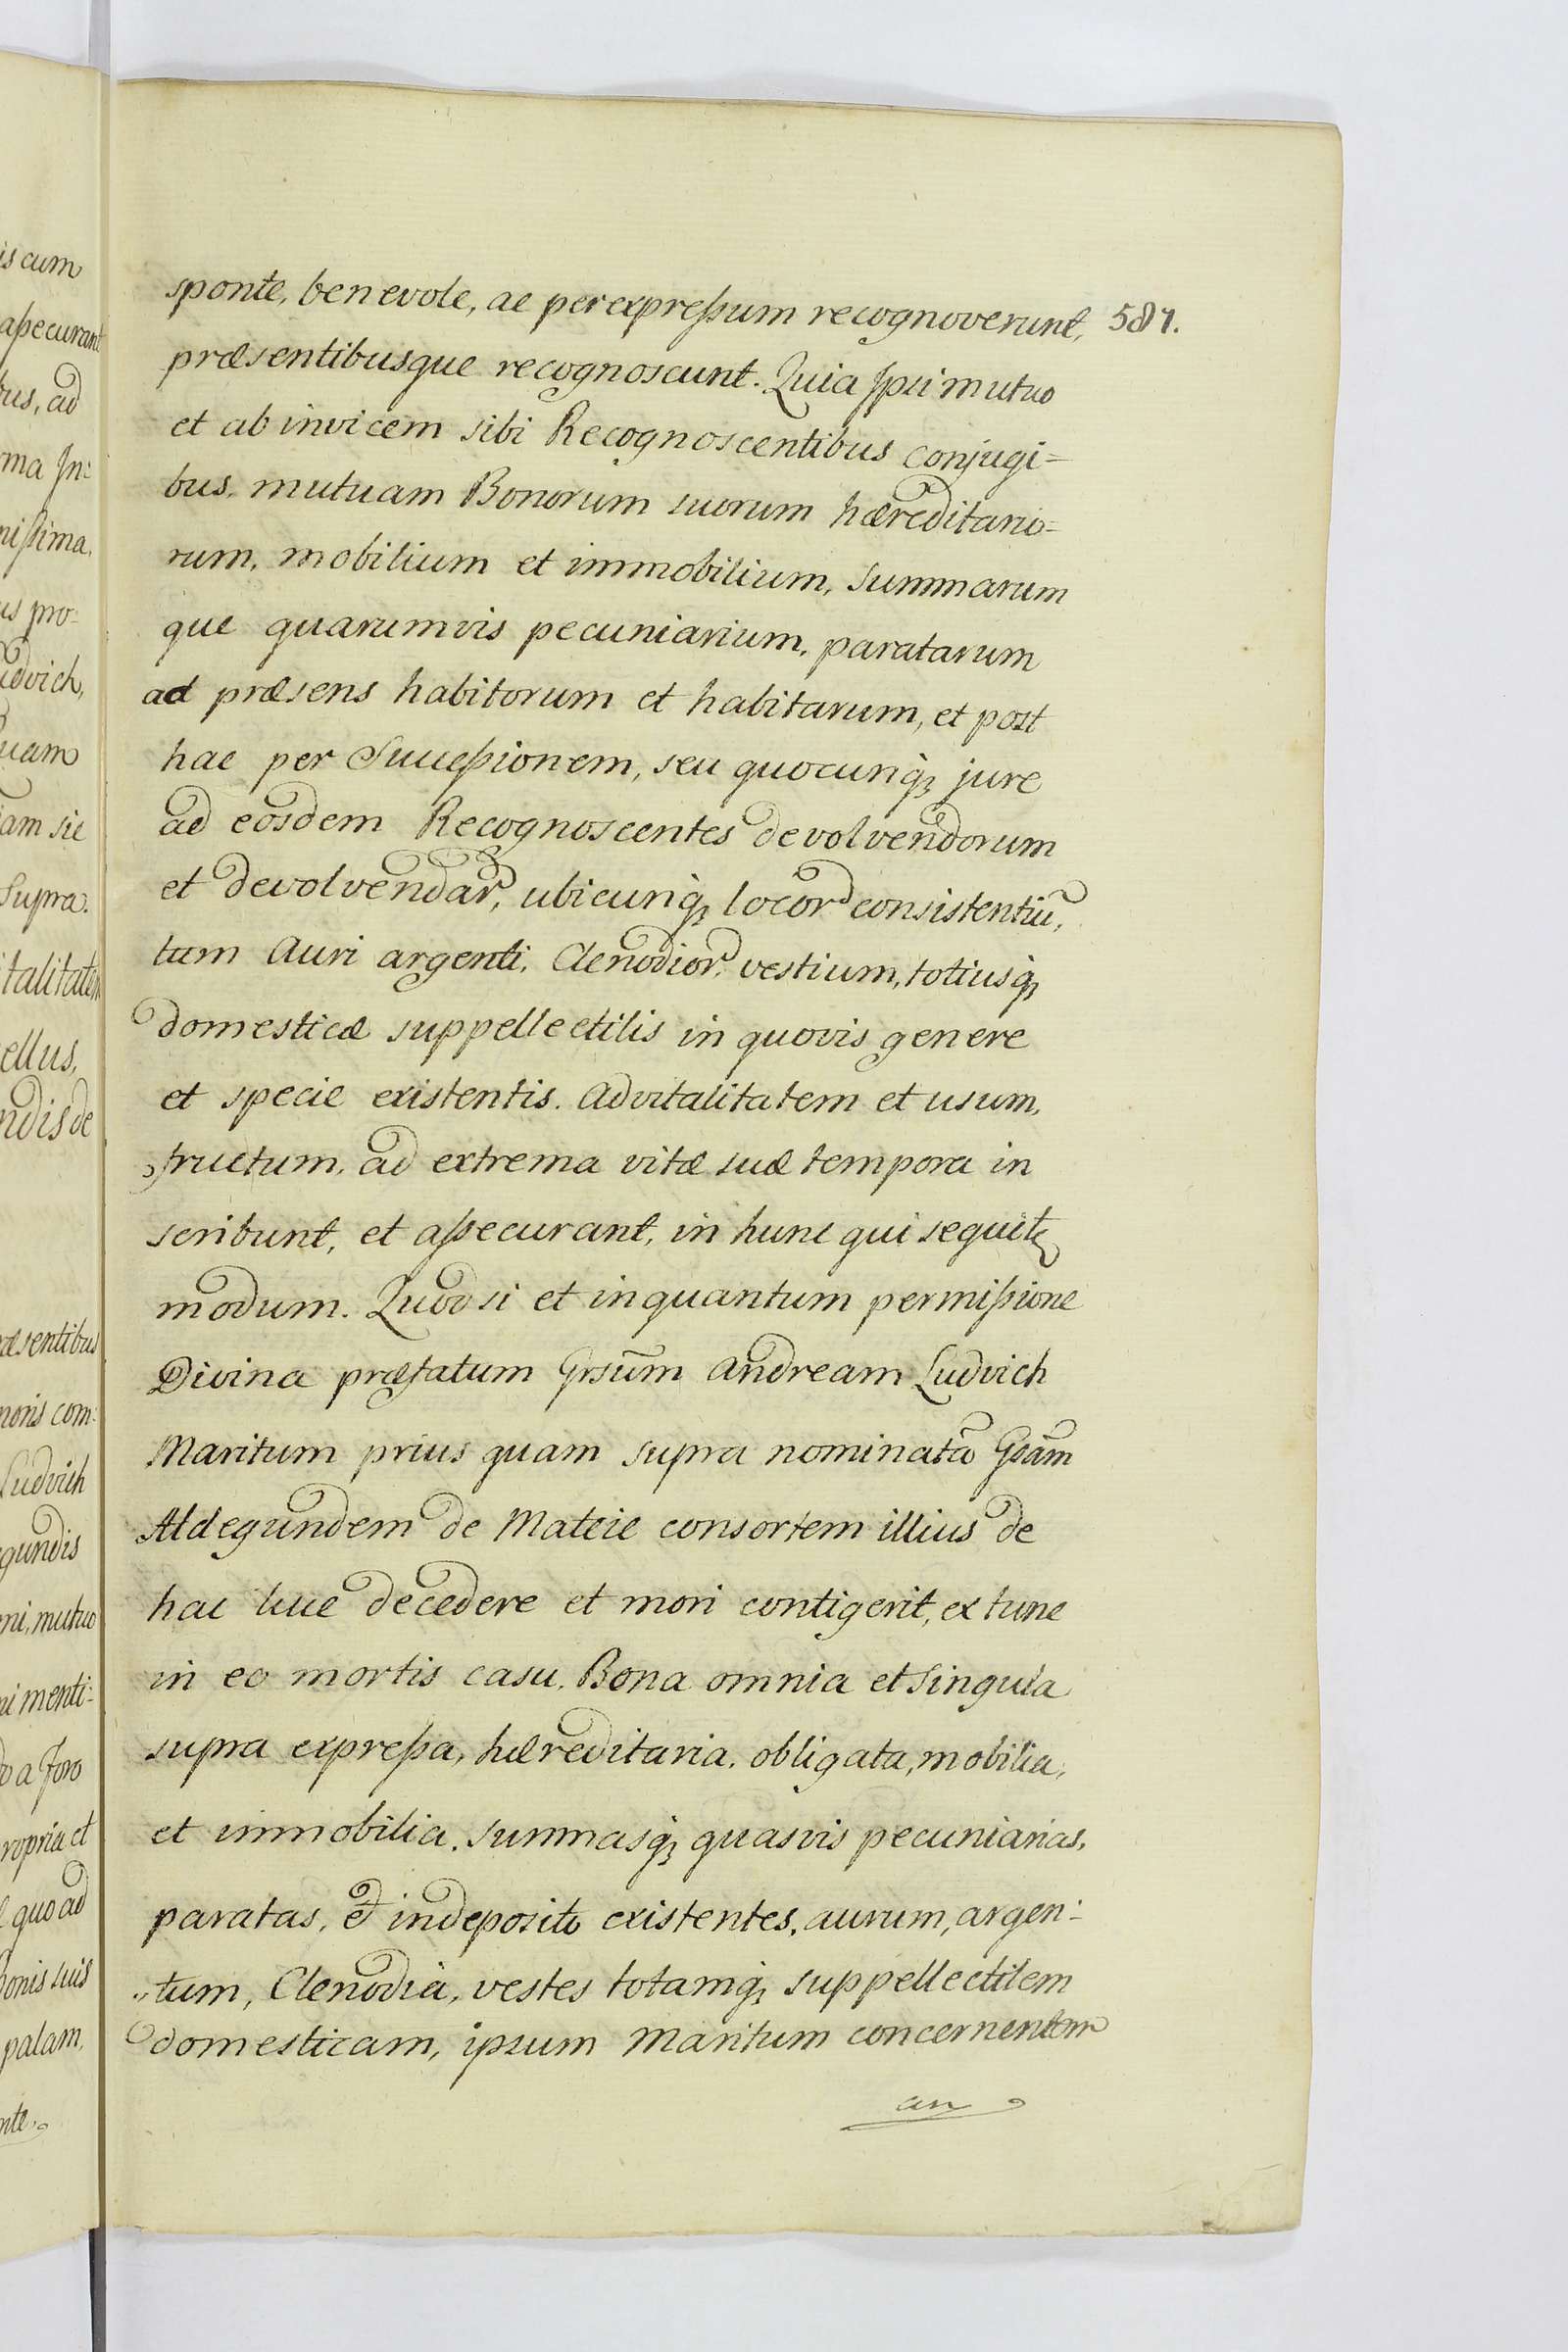 sponte, benevole, ac per expreßum recognoverunt, 581.
præsentibusque recognoscunt. Quia Ipsi mutuo
et ab invicem sibi Recognoscentibus conjugi=
bus. mutuam Bonorum suorum hæreditario=
rum, mobilium et immobilium, summarum
que quarumvis pecuniarium, paratarum
ad præsens habitorum et habitarum, et post
hac per Succeßionem, seu quocunq; jure
ad eosdem Recognoscentes devolvendorum
et devolvendar, ubicunq; locor consistentiũ,
tum Auri argenti, Clenodior, vestium, totiusq;
domesticæ suppellectilis in quovis genere
et specie existentis. Advitalitatem et usum,
fructum, ad extrema vitæ suæ tempora in
scribunt, et aßecurant, in hunc qui sequit
modum. Quod si et inquantum permißione
Divina præfatum Grsum Andream Ludvich
Maritum prius quam supra nominatã Gsam
Aldegundem de Mateie consortem illius de
hac luce decedere et mori contigerit, ex tunc
in eo mortis casu. Bona omnia et singula
supra expreßa, hæreditaria, obligata, mobilia,
et immobilia, summasq; quasvis pecuniarias,
paratas, et in deposito existentes, aurum, argen:
"tum, Clenodia, vestes totamq; suppellectilem
domesticam, ipsum Maritum concernentem
an